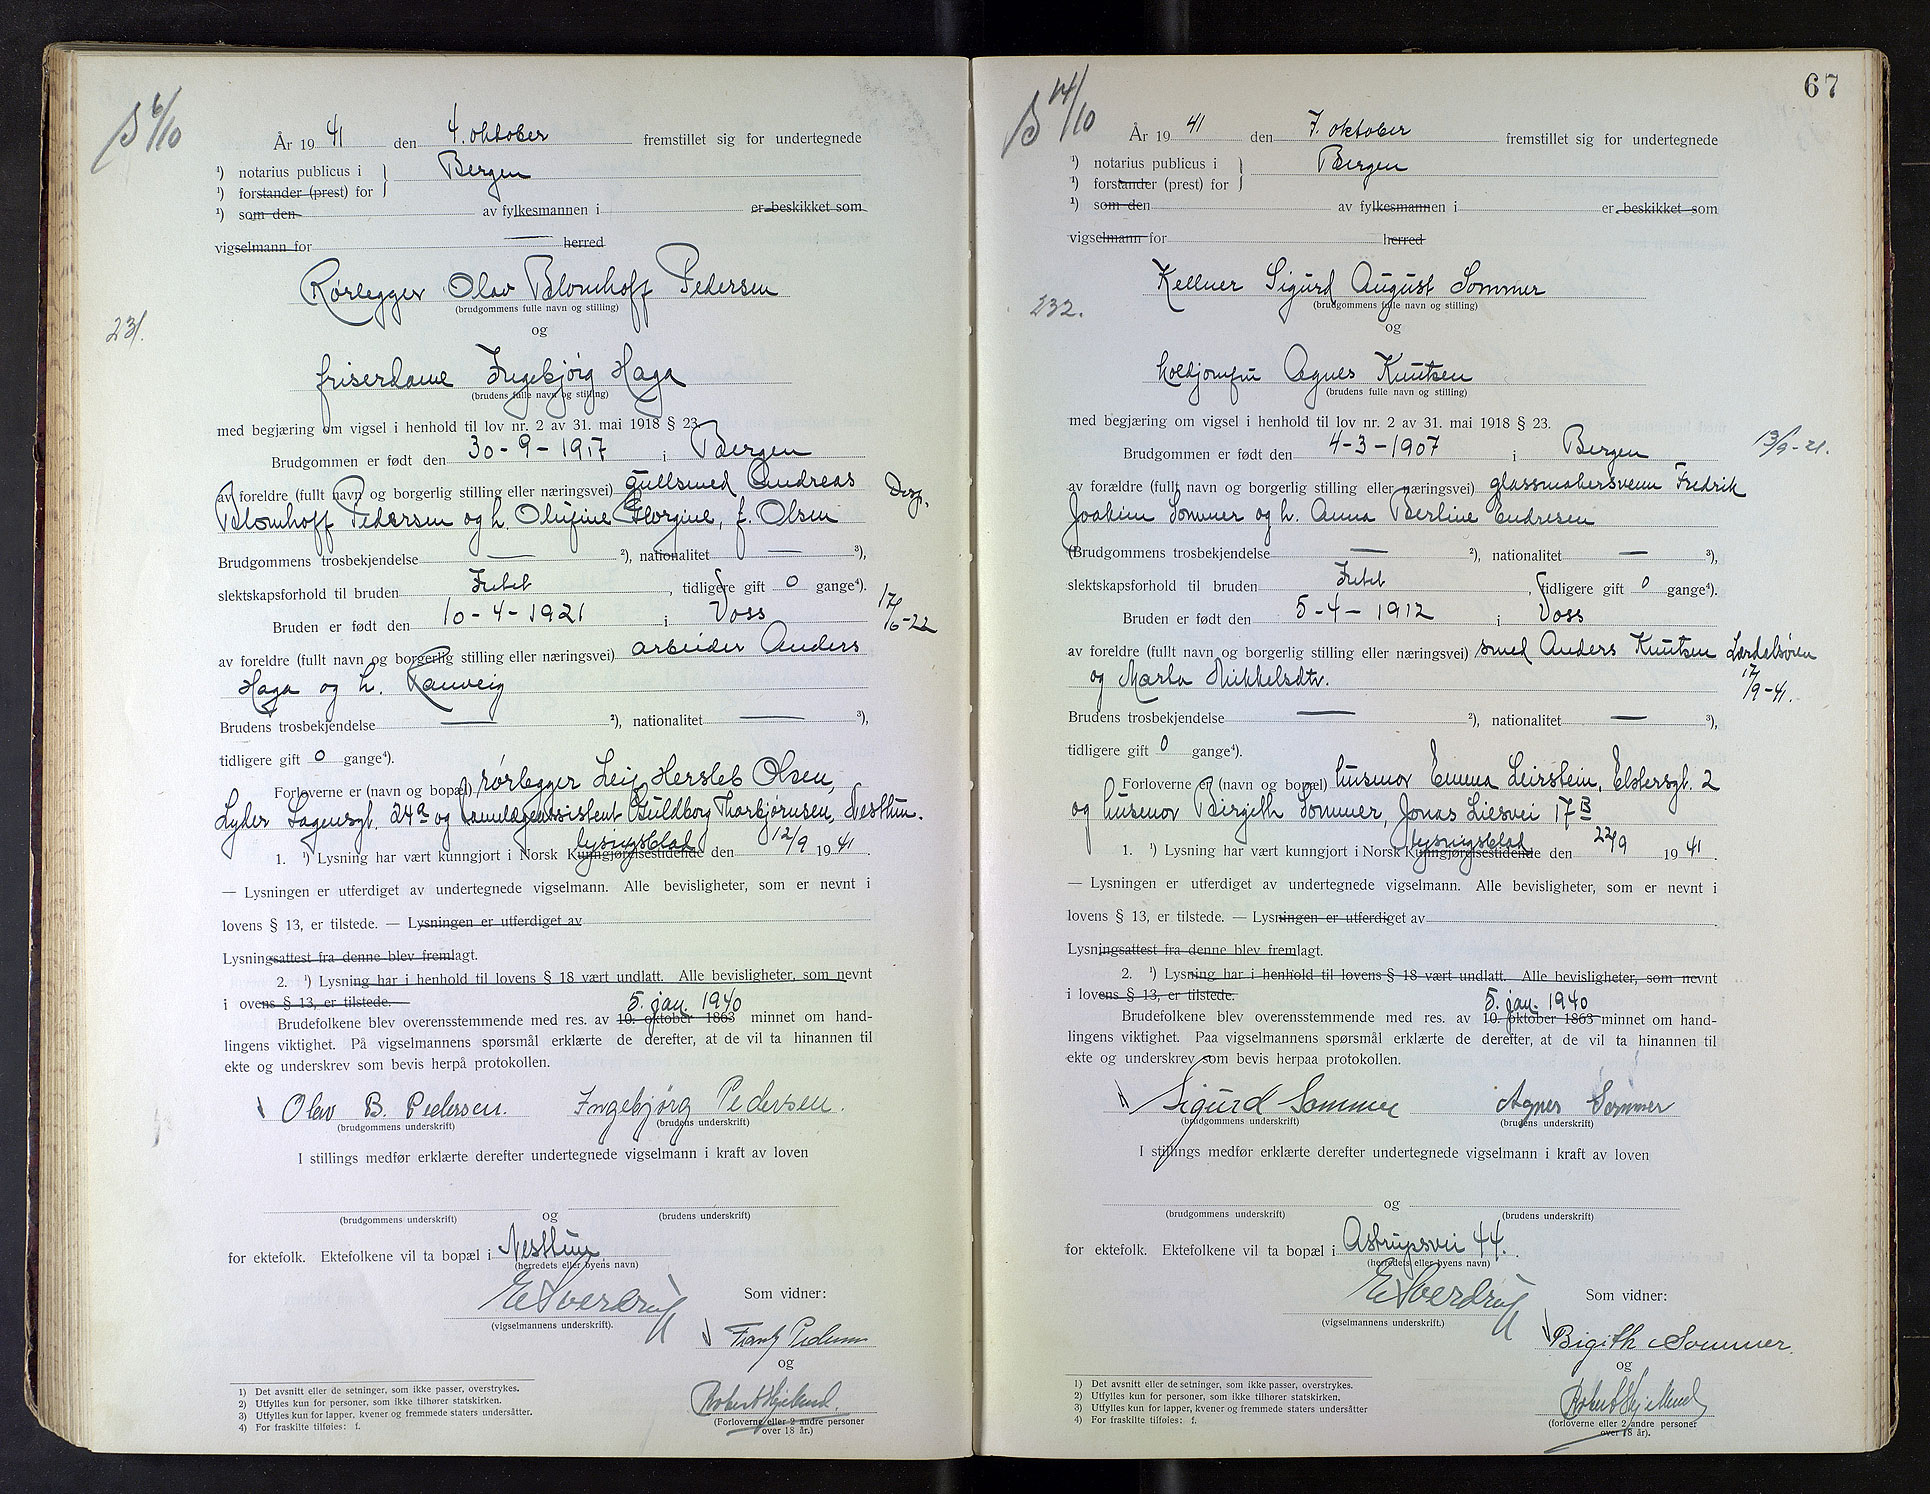 B 6/10
År 19 41 den 4. oktober fremstillet sig for undertegnede
¹) notarius publicus i } Bergen
¹) forstander (prest) for
¹) som den av fylkesmannen i er beskikket som
vigselmann for — herred
Rørlegger Olav Blomhoff Pedersen
(brudgommens fulle navn og stilling)
231.
og
friserdame Ingebjørg Haga
(brudens fulle navn og stilling)
med begjæring om vigsel i henhold til lov nr. 2 av 31. mai 1918 § 23.
Brudgommen er født den 30-9-1917 i Bergen
av foreldre (fullt navn og borgerlig stilling eller næringsvei) gullsmed Andreas
Blomhoff Pedersen og h. Olufine Georgine, f. Olsen
Brudgommens trosbekjendelse — ²), nationalitet — ³),
slektskapsforhold til bruden Intet, tidligere gift 0 gange⁴).
Bruden er født den 10-4-1921 i Voss 17/6-22
av foreldre (fullt navn og borgerlig stilling eller næringsvei) arbeider Anders
Haga og h. Ranveig
Brudens trosbekjendelse — ²), nationalitet — ³),
tidligere gift 0 gange⁴).
Forloverne er (navn og bopæl) rørlegger Leif Hersleb Olsen,
Lyder Sagensgt. 24a og Guldborg Thorbjørnsen, Nesttun.
lysingsblad
1. ¹) Lysning har vært kunngjort i Norsk Kunngjørelsestidende den 12/9 19 41.
— Lysningen er utferdiget av undertegnede vigselmann. Alle bevisligheter, som er nevnt i
lovens § 13, er tilstede. — Lysningen er utferdiget av
Lysningsattest fra denne blev fremlagt.
2. ¹) Lysning har i henhold til lovens § 18 vært undlatt. Alle bevisligheter, som nevnt
i ovens § 13, er tilstede.
5. jan. 1940
Brudefolkene blev overensstemmende med res. av 10. oktober 1863 minnet om hand-
lingens viktighet. På vigselmannens spørsmål erklærte de derefter, at de vil ta hinannen til
ekte og underskrev som bevis herpå protokollen.
Olav B. Pedersen. Ingebjørg Pedersen.
(brudgommens underskrift) (brudens underskrift)
I stillings medfør erklærte derefter undertegnede vigselmann i kraft av loven
og
(brudgommens underskrift) (brudens underskrift)
for ektefolk. Ektefolkene vil ta bopæl i Nesttun
(herredets eller byens navn)
E Sverdrup
(vigselmannens underskrift).
Som vidner:
Frank Pedersen
og
Robert Hjellund.
(Forloverne eller 2 andre personer
over 18 år.)
1) Det avsnitt eller de setninger, som ikke passer, overstrykes.
2) Utfylles kun for personer, som ikke tilhører statskirken.
3) Utfylles kun for lapper, kvener og fremmede staters undersåtter.
4) For fraskilte tilføies: f.
67
B 14/10
År 19 41 den 7. oktober fremstillet sig for undertegnede
¹) notarius publicus i } Bergen
¹) forstander (prest) for
¹) som den av fylkesmannen i er beskikket som
vigselmann for herred
Kellner Sigurd August Sommer
(brudgommens fulle navn og stilling)
232.
og
koldjomfru Agnes Knutsen
(brudens fulle navn og stilling)
med begjæring om vigsel i henhold til lov nr. 2 av 31. mai 1918 § 23.
Brudgommen er født den 4-3-1907 i Bergen 13/9-21.
av forældre (fullt navn og borgerlig stilling eller næringsvei) glassmakersvenn Fredrik
Joakim Sommer og h. Anna Berline Endresen
Brudgommens trosbekjendelse — ²), nationalitet — ³),
slektskapsforhold til bruden Intet, tidligere gift 0 gange⁴).
Bruden er født den 5-4-1912 i Voss
av foreldre (fullt navn og borgerlig stilling eller næringsvei) smed Anders Knutsen Lærdalsøren
og Marta Mikkelsdtr. 17/9-41.
Brudens trosbekjendelse — ²), nationalitet — ³),
tidligere gift 0 gange⁴).
Forloverne er (navn og bopæl) husmor Emma Leirstein, Elstersgt. 2
og husmor Birgith Sommer, Jonas Liesvei 17 B
lysingsblad
1. ¹) Lysning har vært kunngjort i Norsk Kunngjørelsestidende den 22/9 19 41.
— Lysningen er utferdiget av undertegnede vigselmann. Alle bevisligheter, som er nevnt i
lovens § 13, er tilstede. — Lysningen er utferdiget av
Lysningsattest fra denne blev fremlagt.
2. ¹) Lysning har i henhold til lovens § 18 vært undlatt. Alle bevisligheter, som nevnt
i lovens § 13, er tilstede.
5. jan. 1940
Brudefolkene blev overensstemmende med res. av 10. oktober 1863 minnet om hand-
lingens viktighet. Paa vigselmannens spørsmål erklærte de derefter, at de vil ta hinannen til
ekte og underskrev som bevis herpaa protokollen.
Sigurd Sommer Agnes Sommer
(brudgommens underskrift) (brudens underskrift)
I stillings medfør erklærte derefter undertegnede vigselmann i kraft av loven
og
(brudgommens underskrift) (brudens underskrift)
for ektefolk. Ektefolkene vil ta bopæl i Astrupsvei 44.
(herredets eller byens navn)
E Sverdrup
(vigselmannens underskrift.)
Som vidner:
Bigith Sommer.
og
Robert Hjellund
(forloverne eller 2 andre personer
over 18 år).
1) Det avsnitt eller de setninger, som ikke passer, overstrykes.
2) Utfylles kun for personer, som ikke tilhører statskirken.
3) Utfylles kun for lapper, kvener og fremmede staters undersåtter
4) For fraskilte tilføies: f.